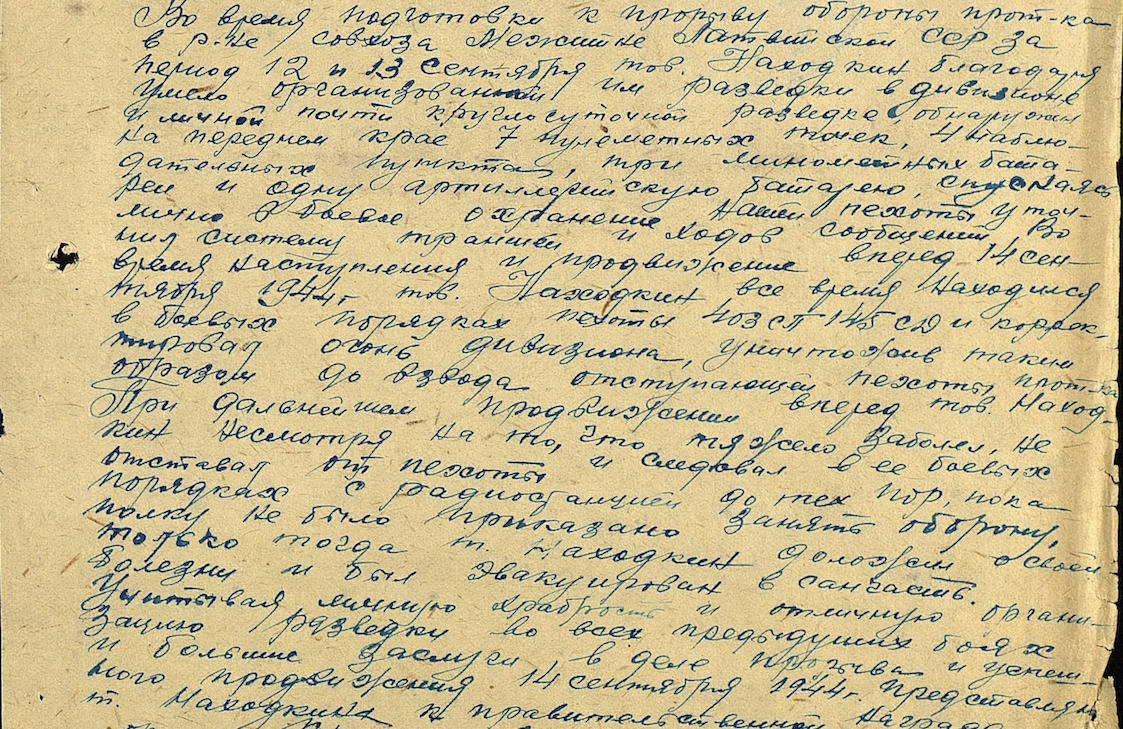 Во время подготовки к прорыву обороны прот-ка
в р-не совхоза Межитне Латвийской ССР за
период 12 и 13 сентября тов. Находкин благодаря
умело организованной им разведки в дивизионе
и личной почти круглосуточной разведке обнаружил
на переднем крае 7 пулеметных точек, 4 наблю-
дательных пункта, три минометных бата-
реи и одну артиллерийскую батарею, спускаясь
лично в боевое охранение нашей пехоты уточ-
нил систему траншей и ходов сообщений. Во
время наступления и продвижение вперед 14 сен-
тября 1944г тов. Находкин все время находился
в боевых порядках пехоты 403 сп 145 сд и коррек-
тировал огонь дивизиона, уничтожив таким
образом до взвода отступающей пехоты прот-ка
При дальнейшем продвижении вперед тов. Наход-
кин несмотря на то, что тяжело заболел, не
отставал от пехоты и следовал в ее боевых
порядках с радиостанцией до тех пор, пока
полку не было приказано занять оборону,
только тогда т. Находкин доложил о своей
болезни и был эвакуирован в санчасть.
Учитывая личную храбрость и отличную органи-
зацию разведки во всех предыдущих боях
и большие заслуги в деле прорыва и успеш-
ного продвижения 14 сентября 1944г. представляю
т. Находкина к правительственной награде